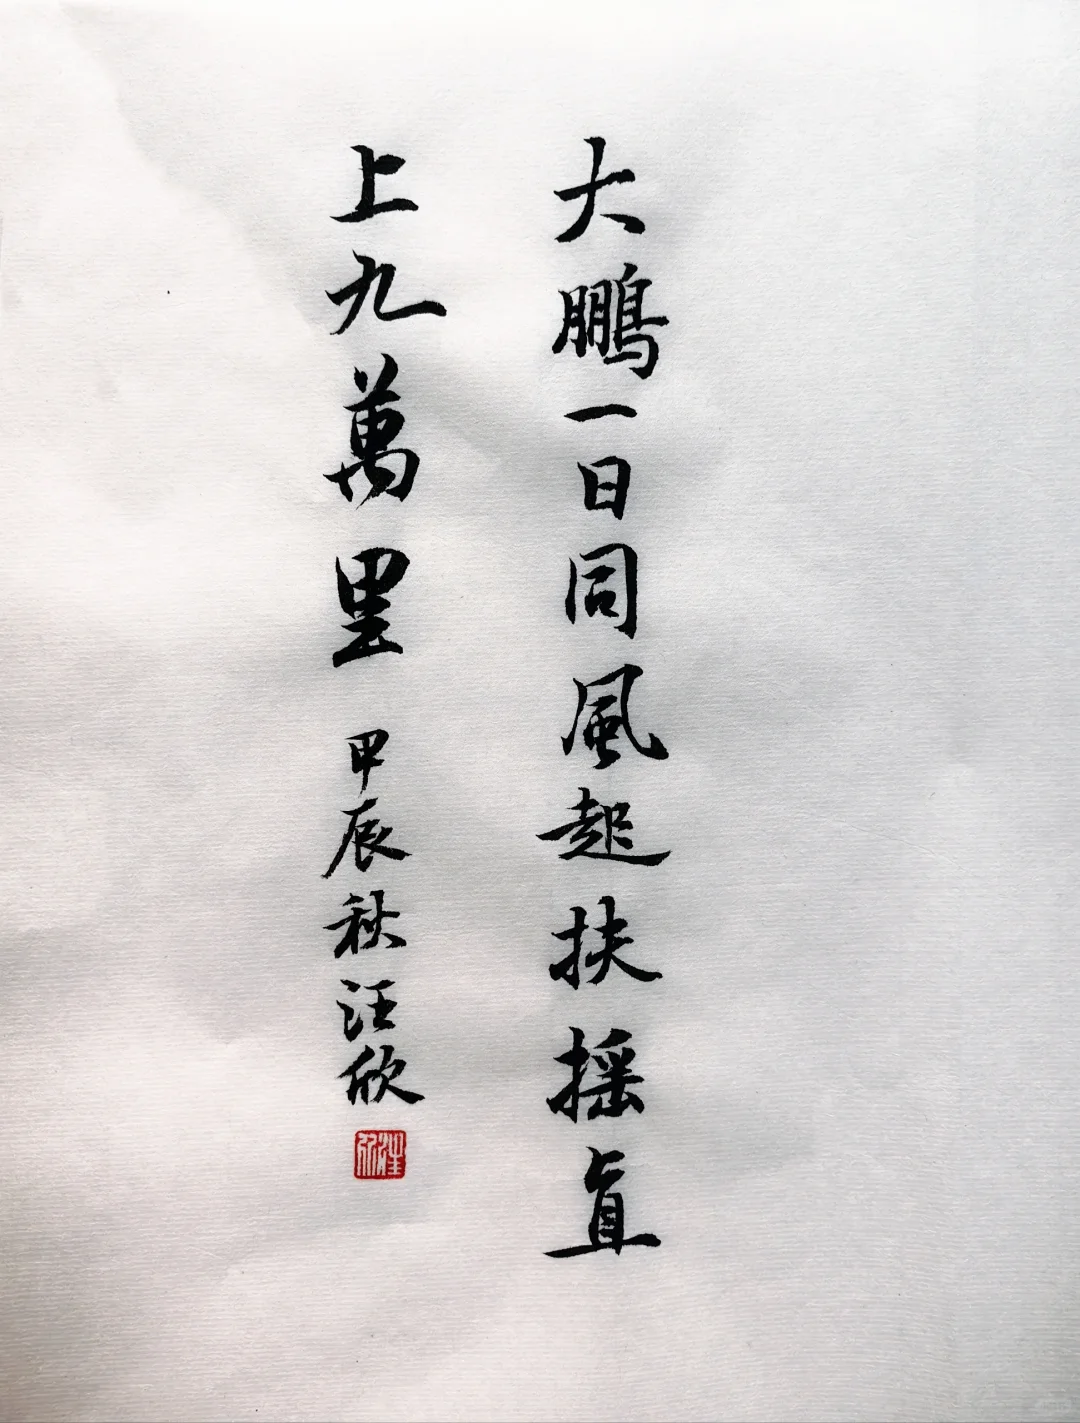 大鵬一日同風起扶摇直
上九萬里 甲辰秋汪欣